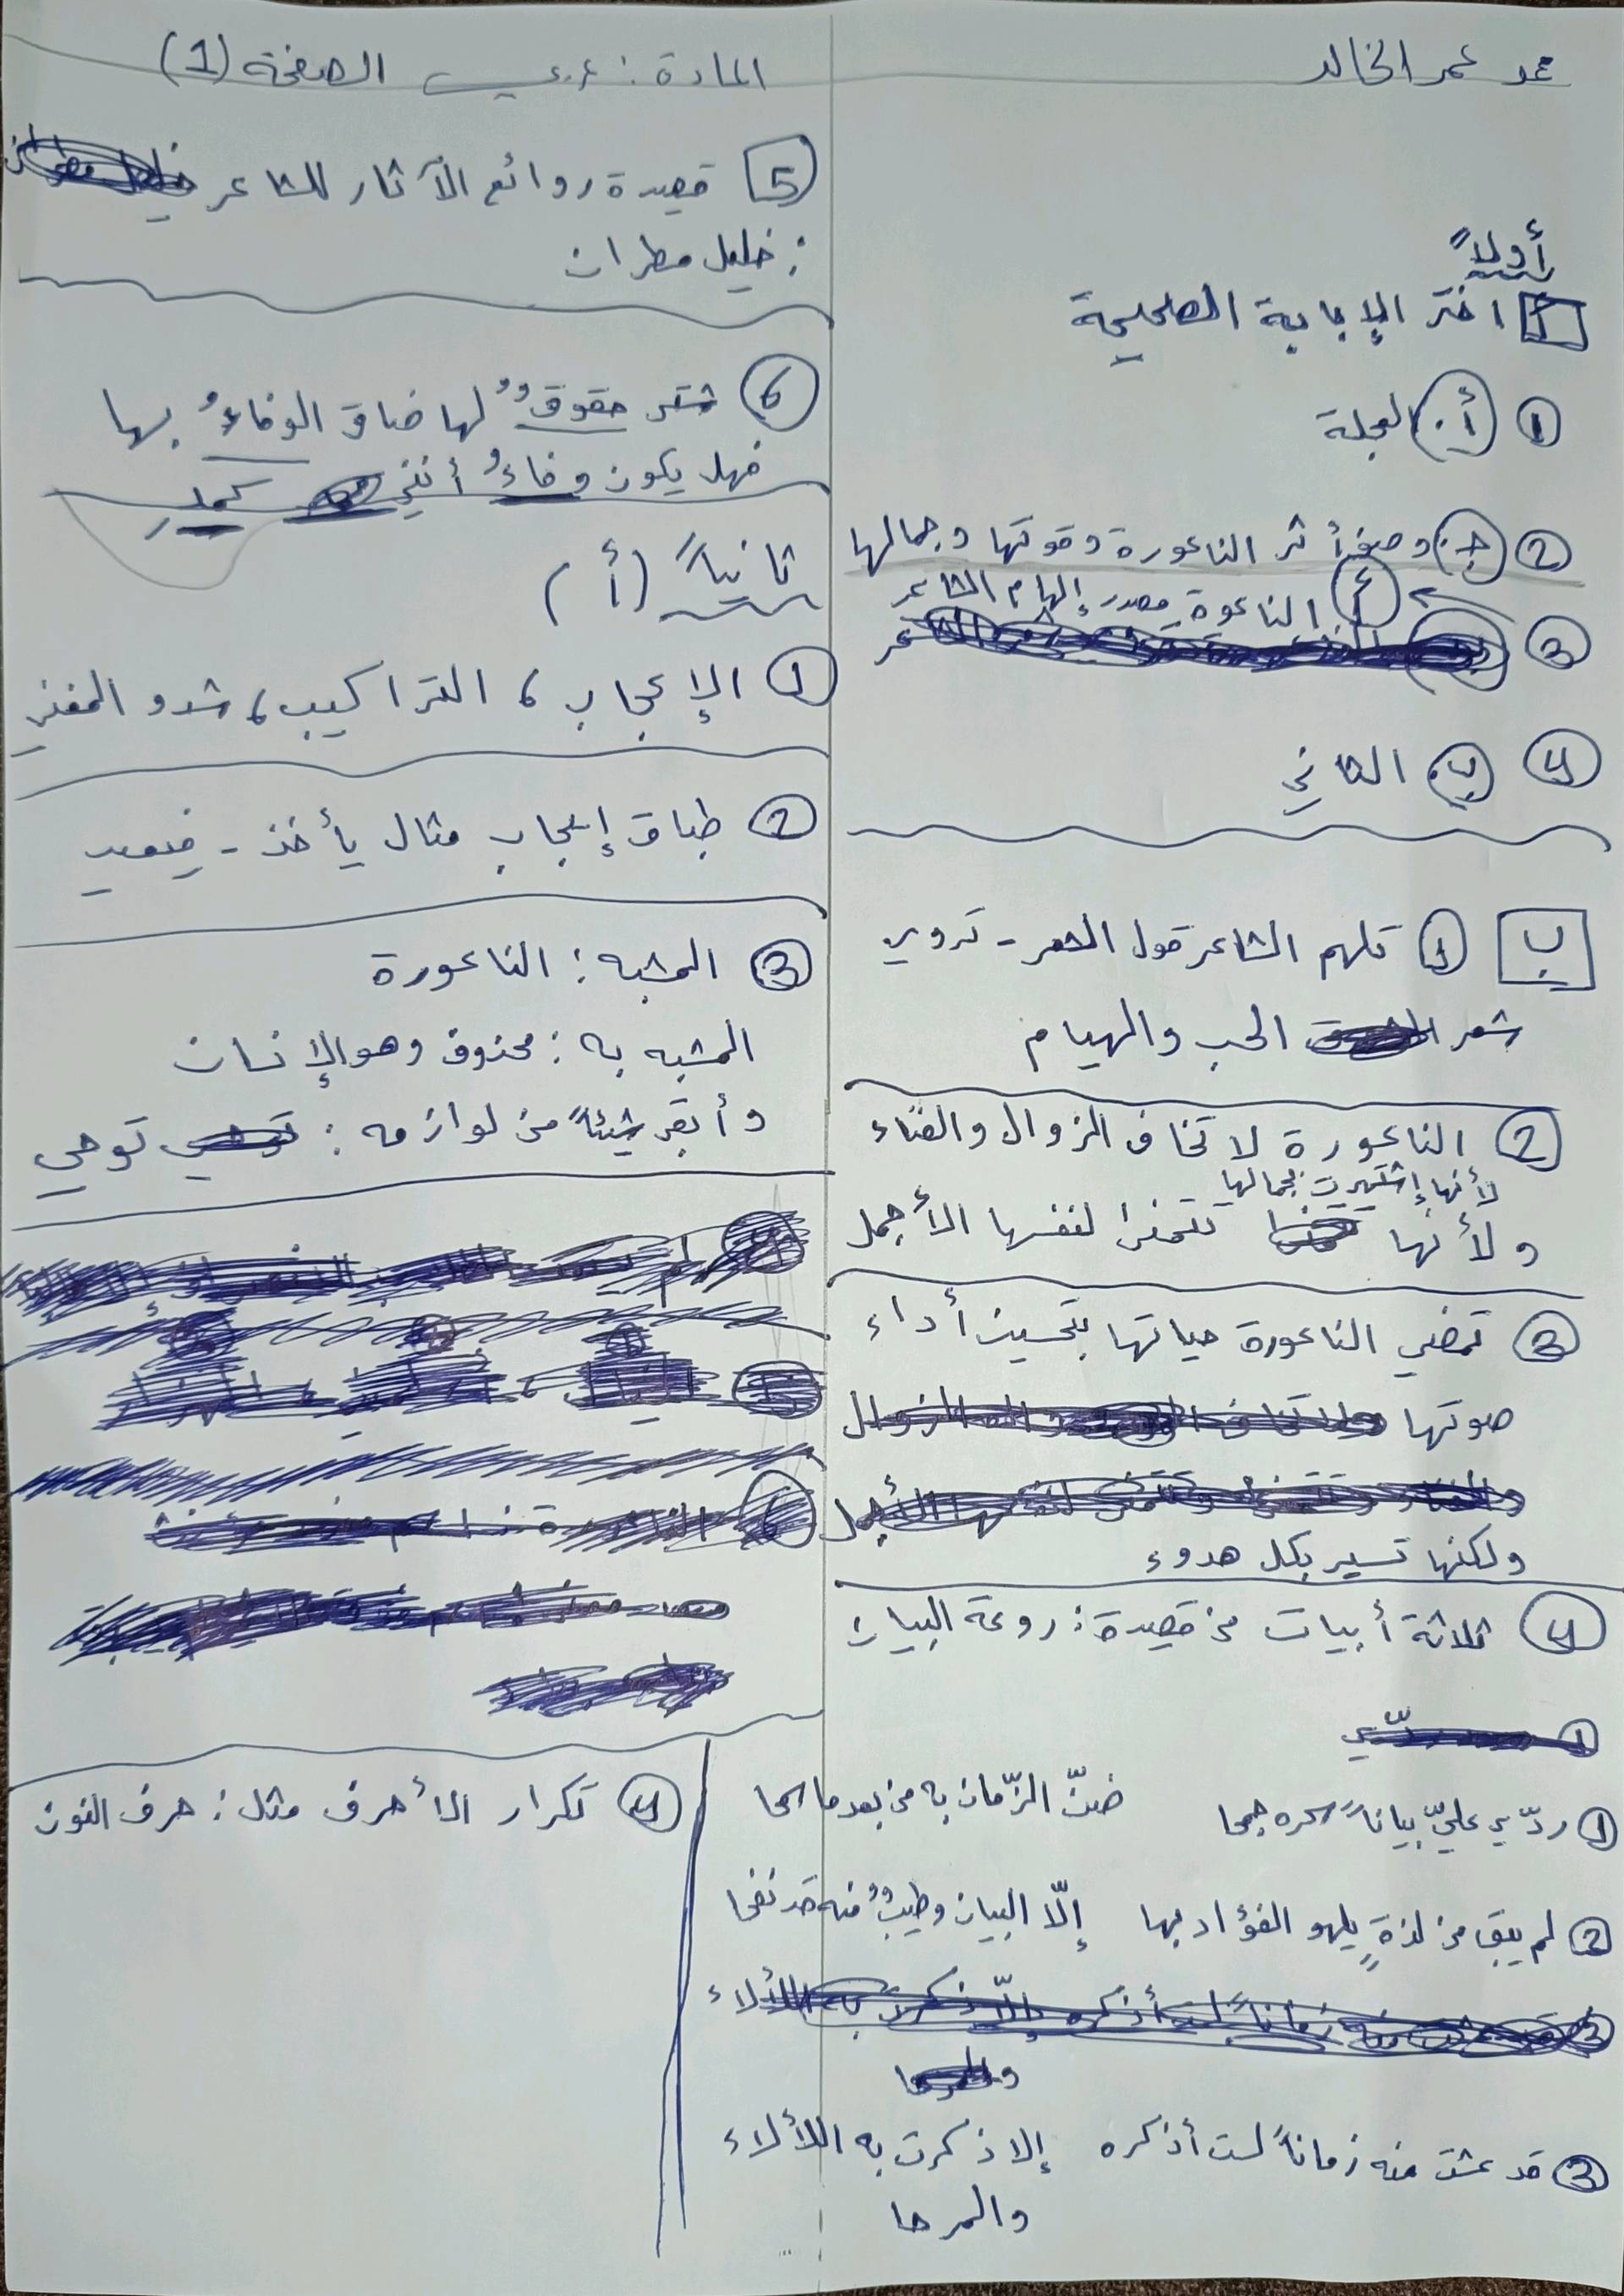 محمد عمر الخالد
المادة: عربي الصفحة (1)
أولاً
أ اختر الإجابة الصحيحة
1 أ. العجلة
2 ج. وصف أثر الناعورة وقوتها وجمالها
3 أ الناعوة مصدر إلهام الشاعر
4 ب. الثاني
ب 1 تلهم الشاعر قول الشعر - تروي
شعر الحب والهيام
2 الناعورة لا تخاف الزوال والفناء
لأنها إشتهرت بجمالها
ولأنها تتمنى لنفسها الأجمل
3 تمضي الناعورة حياتها بتحسين أداء
صوتها
ولكنها تسير بكل هدوء
4 ثلاثة أبيات من قصيدة: روعة البيان
1 ردّي عليّ بياناً سحره جمحا ضنّ الزّمان به من بعد ما سمحا
2 لم يبق من لذةٍ يلهو الفؤاد بها إلّا البيان وطيبٌ منه قد نفحا
3 قد عشت منه زماناً لست أذكره إلا ذكرت به اللألاء
والمرحا
5 قصيدة روائع الآثار للشاعر
: خليل مطران
6 حقوقٌ لها ضاق الوفاءُ بها
فهل يكون وفاءُ أنني كمد
ثانياً (أ)
1 الإعجاب، التراكيب، شدو المغني
2 طباق إيجاب مثال يأخذ - فيعيد
3 المشبه: الناعورة
المشبه به: محذوف وهو الإنسان
وأبقى شيئاً من لوازمه: توحي
4 تكرار الأحرف مثل: حرف النون